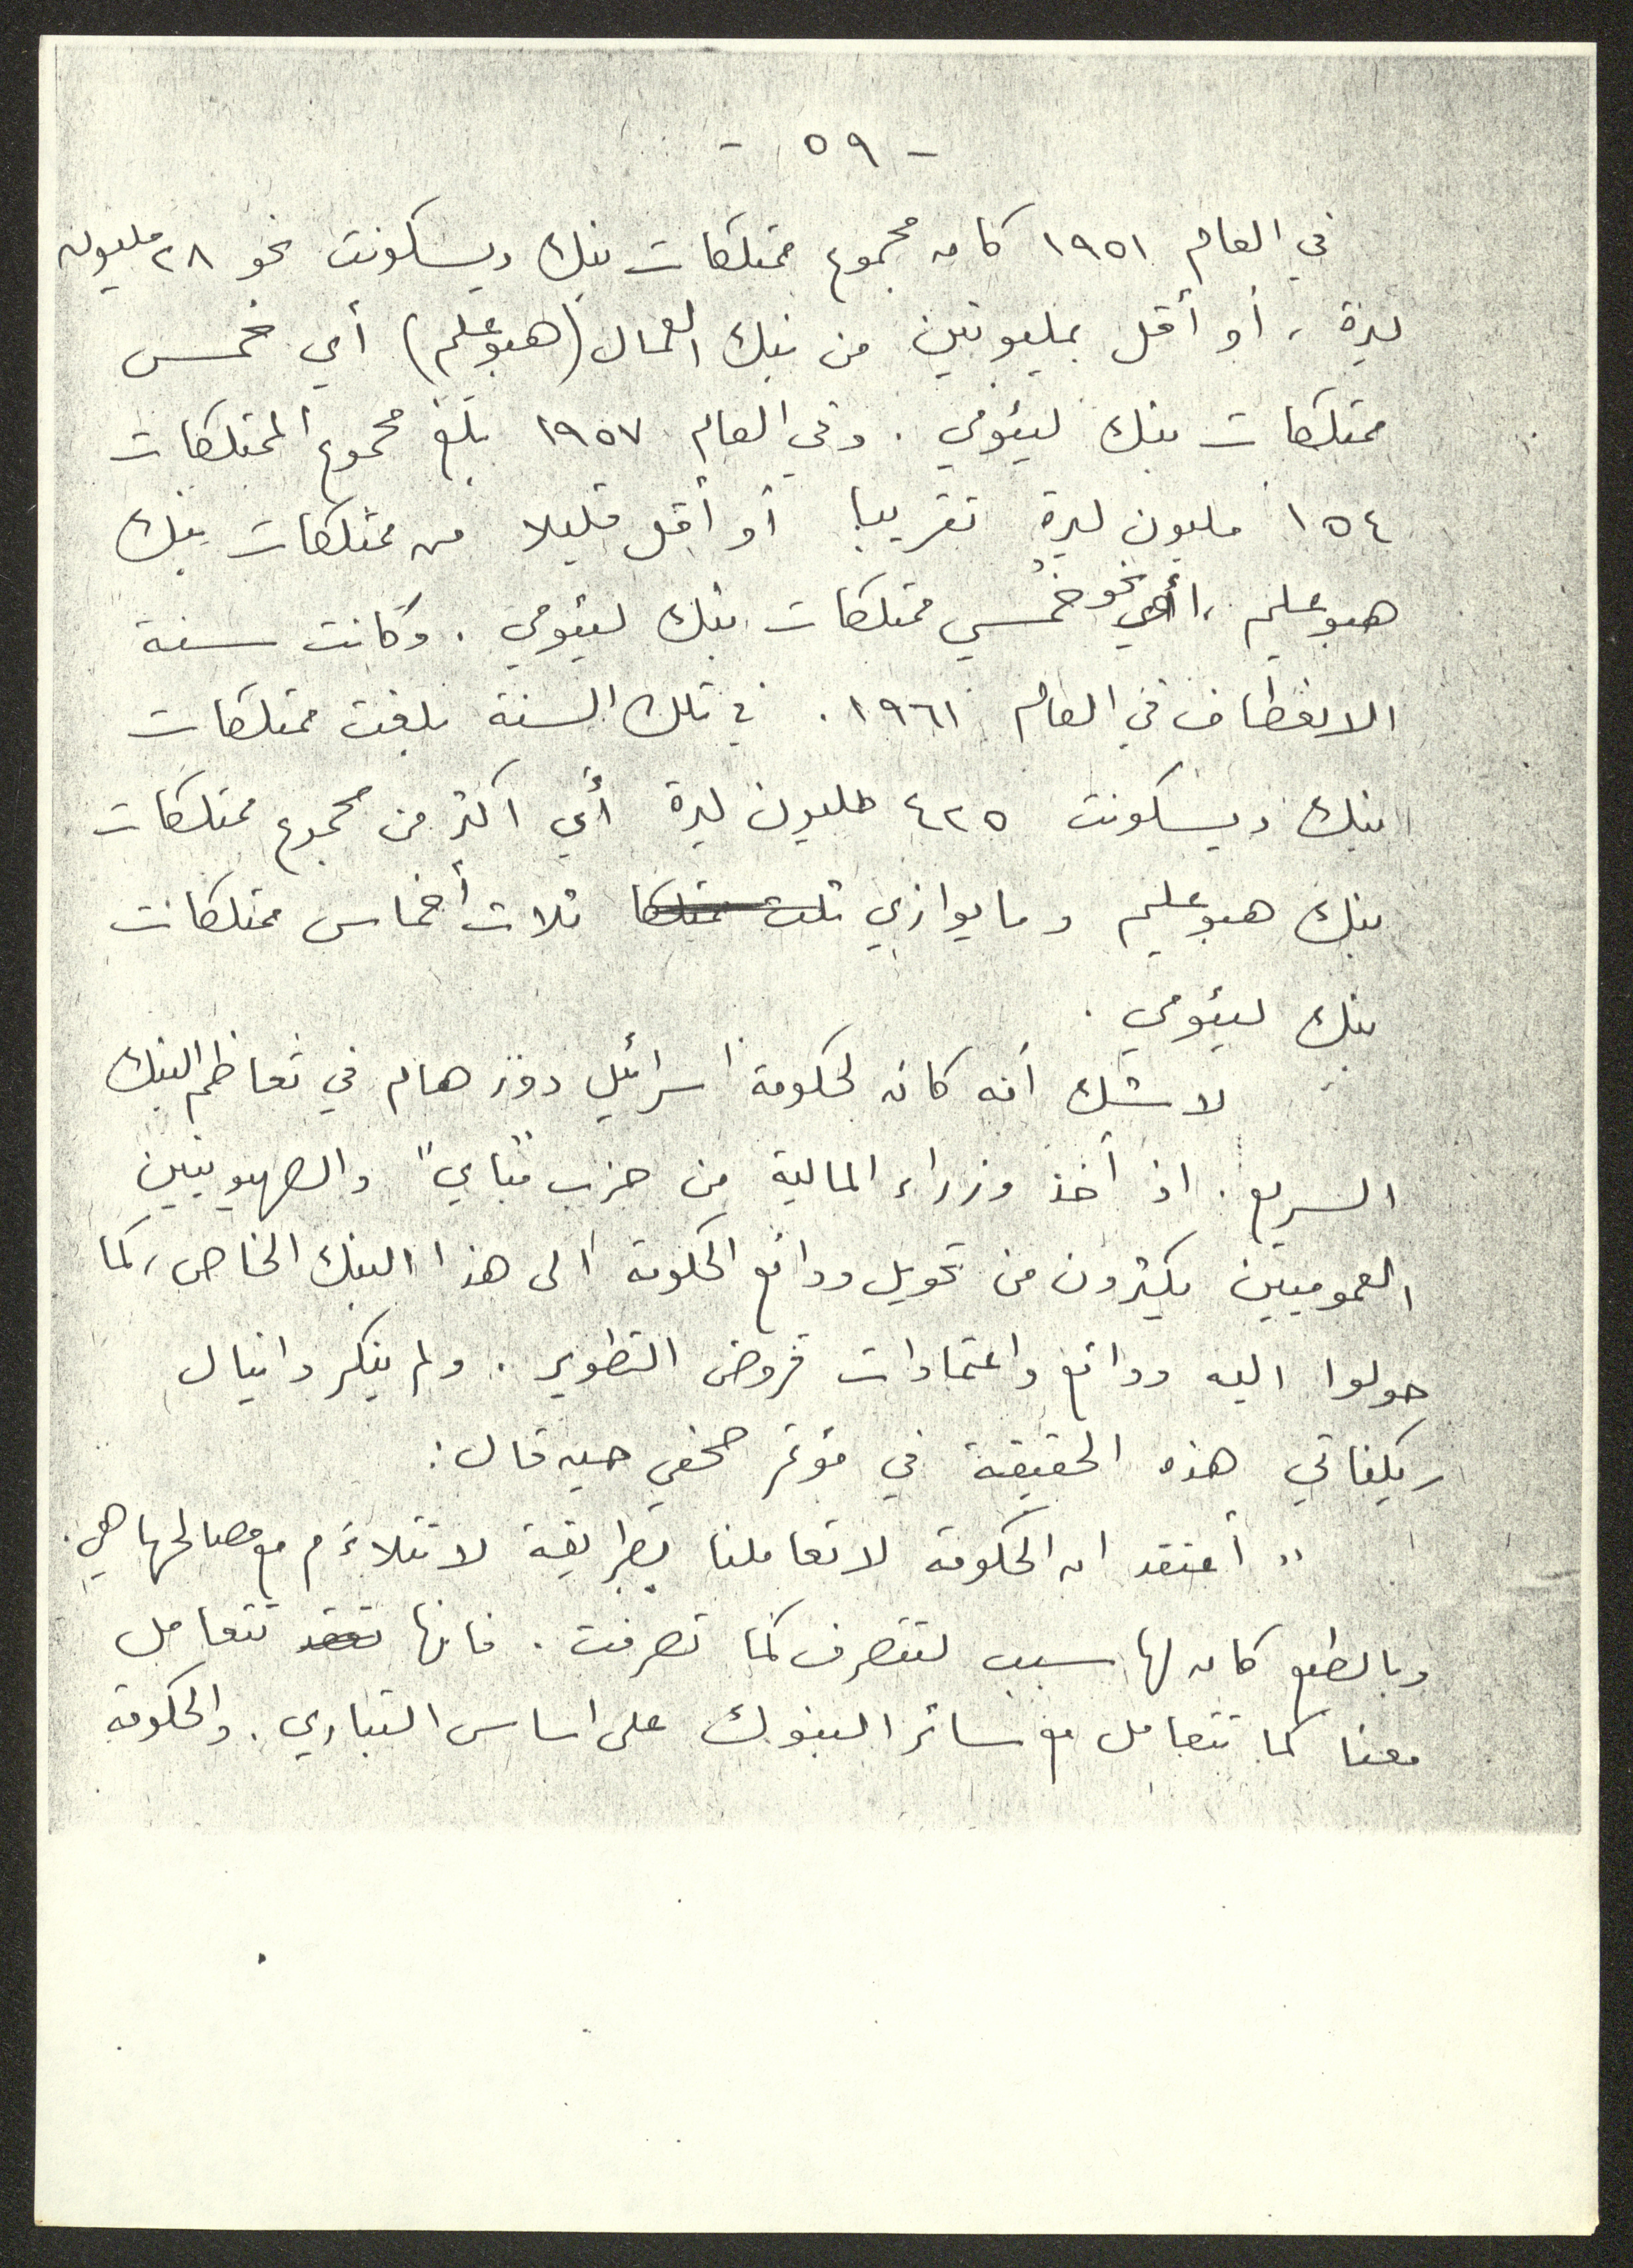 - ٥٩ -
في العام ١٩٥١ كان مجموع ممتلكات بنك ديسكونت نحو ٢٨ مليون
ليرة ، أو أقل بمليونين من بنك العمال (هبوعليم) أي خمس
ممتلكات بنك ليئومي . وفي العام ١٩٥٧ بلغ مجموع الممتلكات
١٥٤ مليون ليرة تقريبا أو أقل قليلا من ممتلكات بنك
هبوعليم ، أي نحو خمُسي ممتلكات بنك ليئومي . وكانت سنة
الانعطاف في العام ١٩٦١ . في تلك السنة بلغت ممتلكات
بنك ديسكونت ٤٢٥ مليون ليرة أي اكثر من مجموع ممتلكات
بنك هبوعليم وما يوازي ثلاث أخماس ممتلكات
بنك ليئومي .
لا شك أنه كان لحكومة اسرائيل دور هام في تعاظم البنك
السريع . اذ أخذ وزراء المالية من حزب "مباي" والصهيونيين
العموميين يكثرون من تحويل ودائع الحكومة الى هذا البنك الخاص ، كما
حولوا اليه ودائع واعتمادات قروض التطوير . ولم ينكر دانيال
ريكناتي هذه الحقيقة في مؤتمر صحفي حين قال :
" أعتقد ان الحكومة لا تعاملنا بطريقة لا تتلاءم مع مصالحها هي .
وبالطبع كان لها سبب لتتصرف كما تصرفت . فانها تتعامل
معنا كما تتعامل مع سائر البنوك على اساس التباري . والحكومة